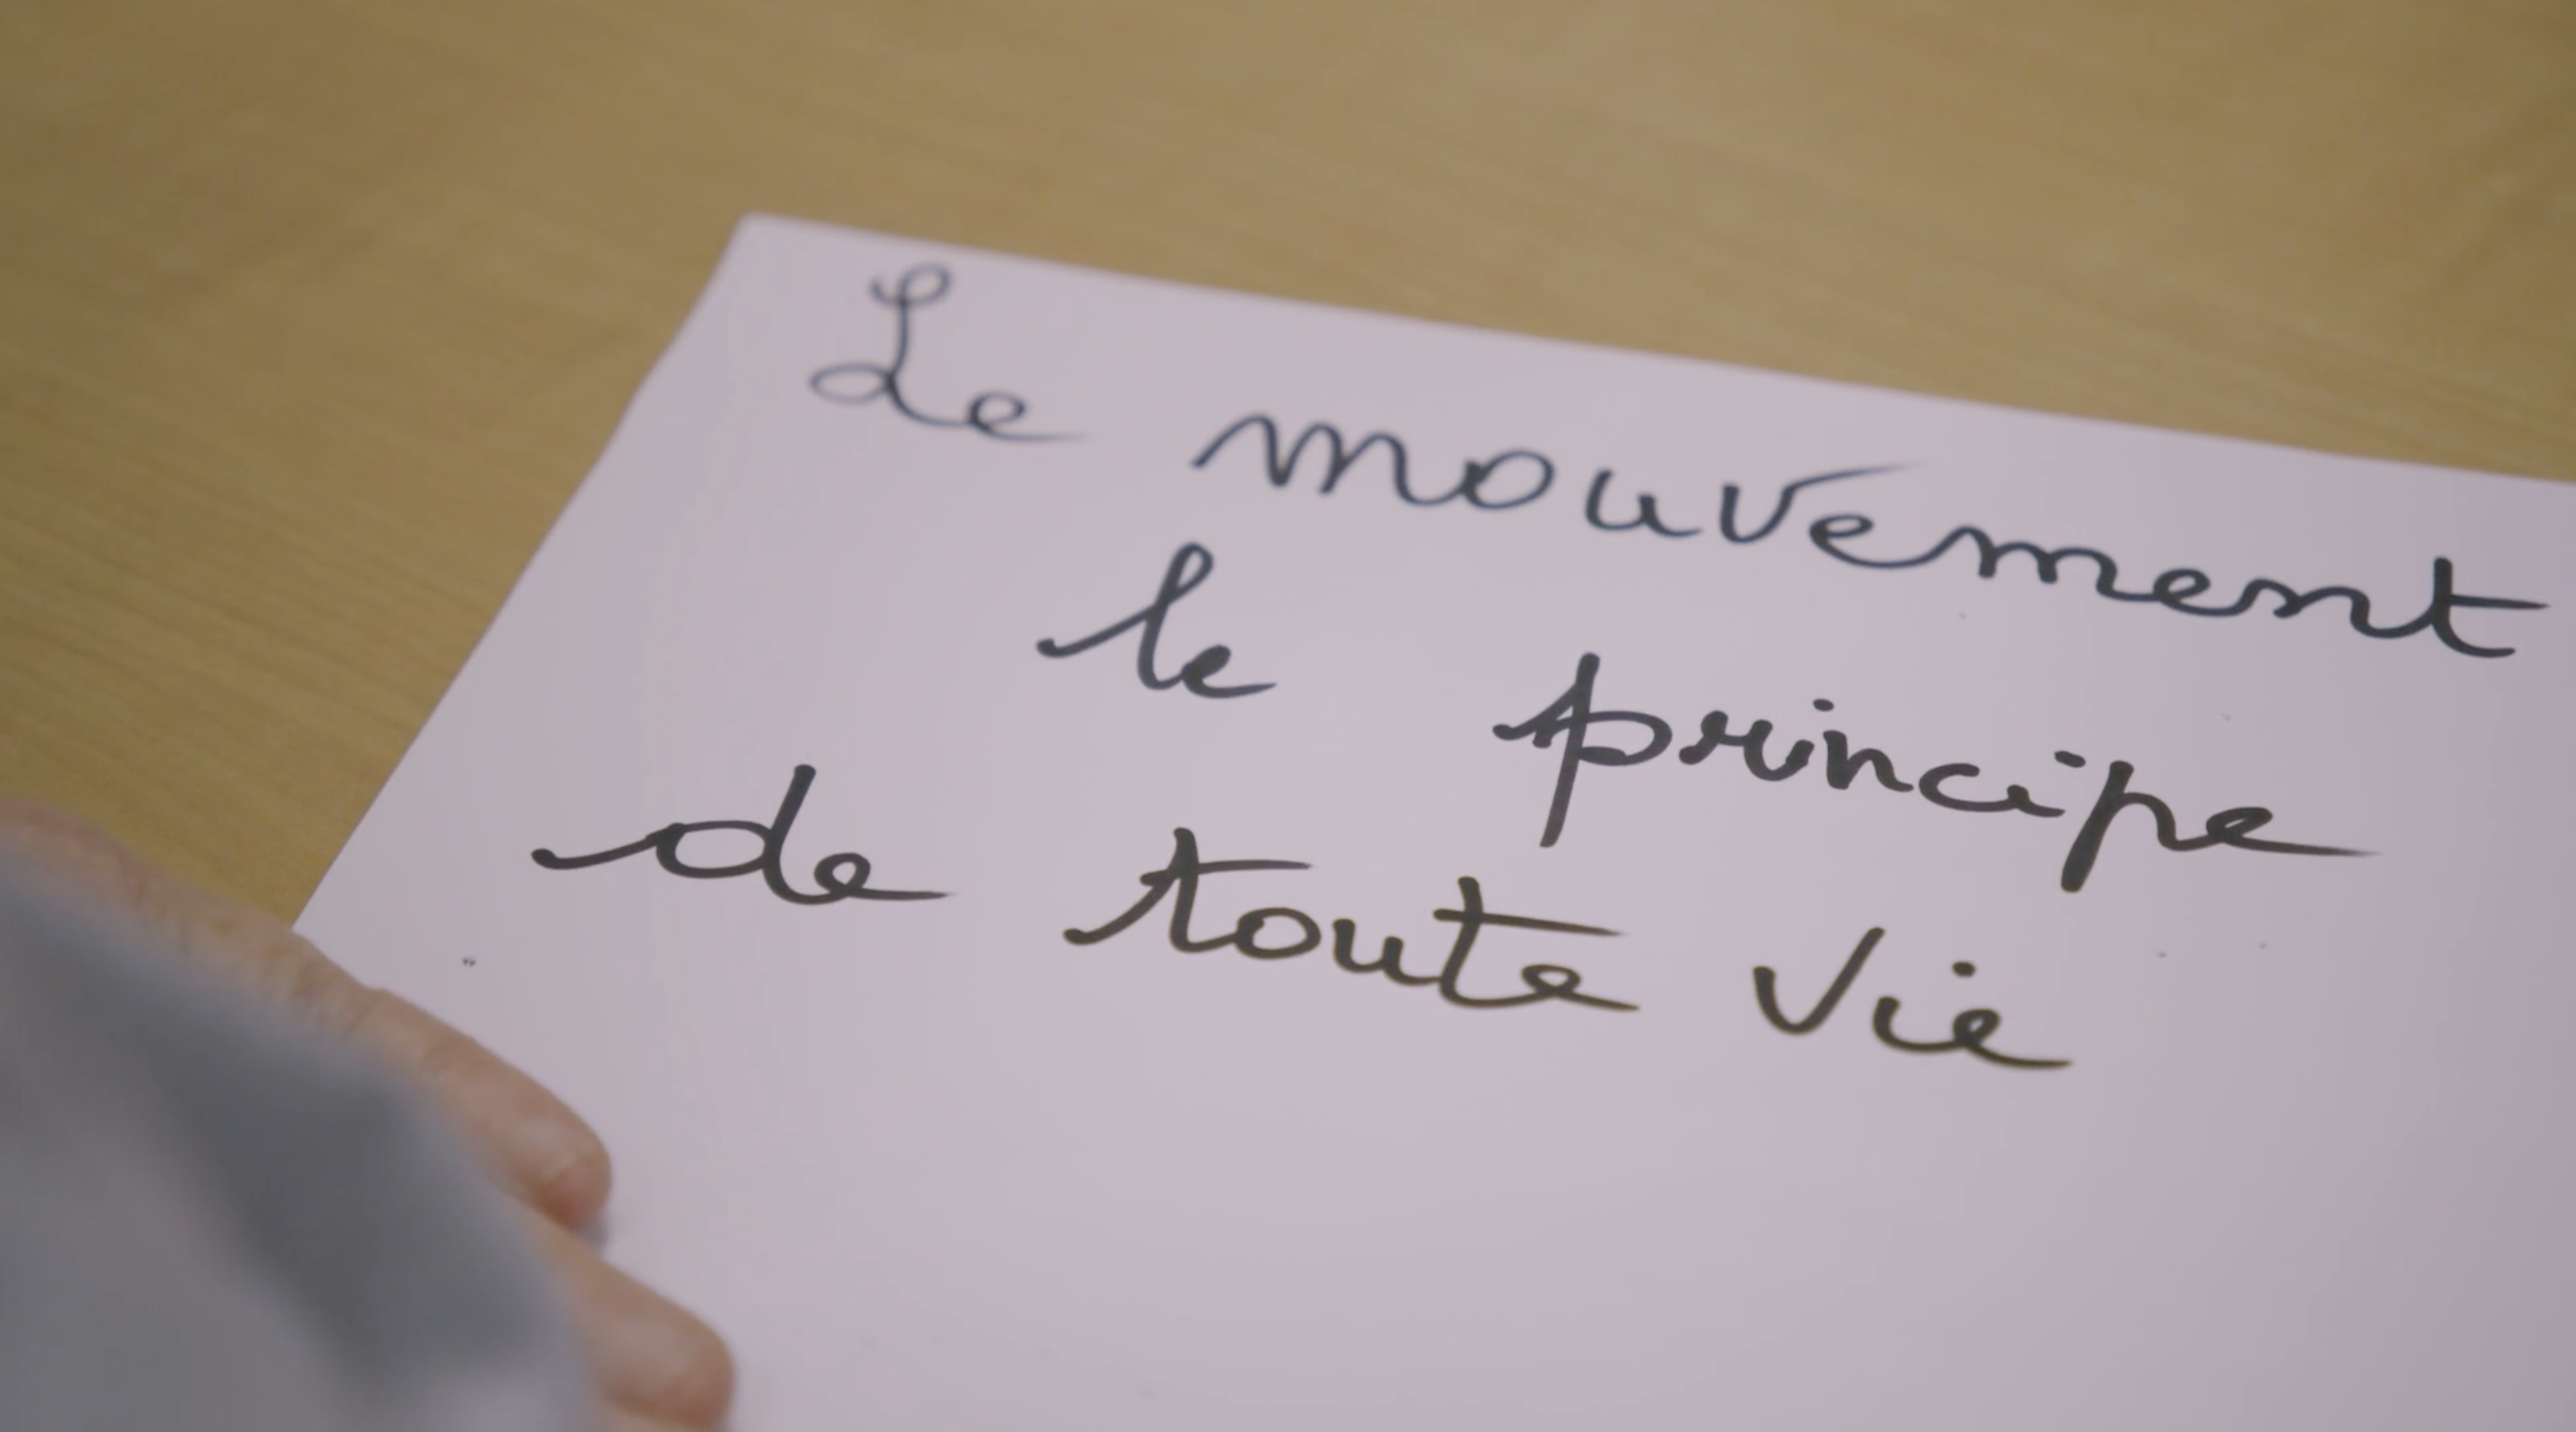 Le mouvement
le principe
de toute vie